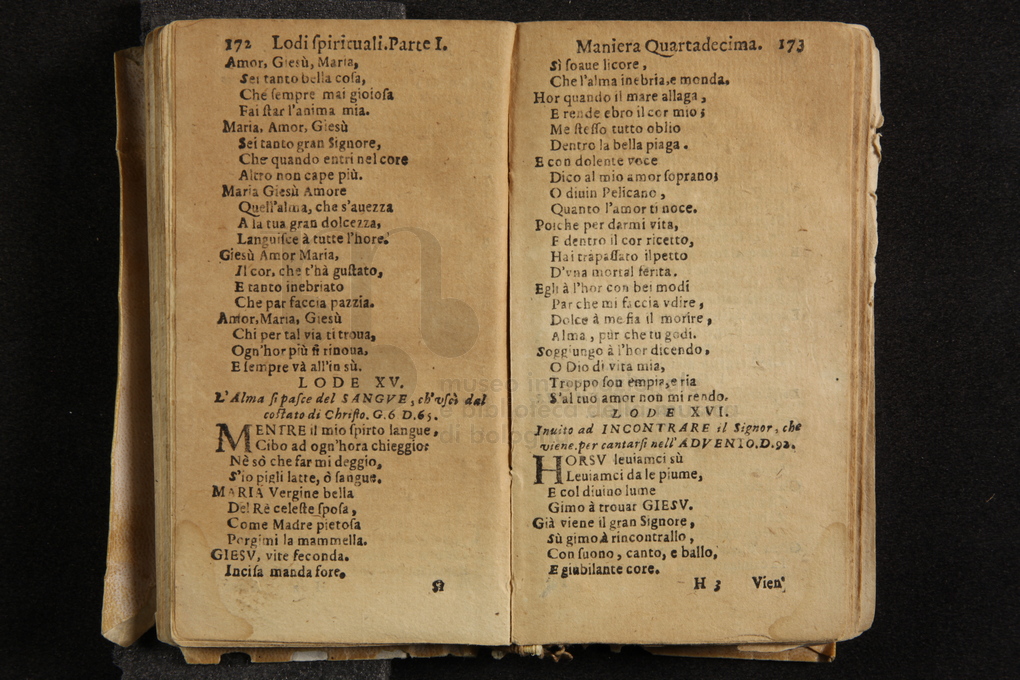 172 Lodi ſpirituali. Parte I.
Amor, Giesù, Maria,
Sei tanto bella coſa,
Che ſempre mai gioioſa
Fai ſtar l'anima mia.
Maria, Amor, Giesù
Sei tanto gran Signore,
Che quando entri nel core
Altro non cape più.
Maria Giesù Amore
Quell'alma, che s'auezza
A la tua gran dolcezza,
Languiſce à tutte l'hore.
Giesù Amor Maria,
Il cor, che t'hà guſtato,
E tanto inebriato
Che par faccia pazzia.
Amor, Maria, Giesù
Chi per tal via ti troua,
Ogn'hor più ſi rinoua,
E ſempre và all'in sù.
LODE XV.
L'Alma ſi paſce del SANGVE, ch'vscì dal
coſtato di Chriſto. G.6 D.65.
MENTRE il mio ſpirto langue,
Cibo ad ogn'hora chieggio:
Nè sò che far mi deggio,
S'io pigli latte, ò ſangue.
MARIA Vergine bella
Del Rè celeſte ſpoſa,
Come Madre pietoſa
Porgimi la mammella.
GIESV, vite feconda.
Inciſa manda fore,
Sì
Maniera Quartadecima. 173
Sì ſoaue licore,
Che l'alma inebria, e monda.
Hor quando il mare allaga,
E rende ebro il cor mio;
Me ſteſſo tutto oblio
Dentro la bella piaga.
E con dolente voce
Dico al mio amor ſoprano;
O diuin Pelicano,
Quanto l'amor ti noce.
Poiche per darmi vita,
E dentro il cor ricetto,
Hai trapaſſato il petto
D'vna mortal ferita.
Egli à l'hor con bei modi
Par che mi faccia vdire,
Dolce à me ſia il morire,
Alma, pur che tu godi.
Soggiungo à l'hor dicendo,
O Dio di vita mia,
Troppo ſon empia, e ria
S'al tuo amor non mi rendo.
LODE XVI.
Inuito ad INCONTRARE il Signor, che
viene. per cantarſi nell'ADVENTO. D.92.
HORSV leuiamci sù
Leuiamci da le piume,
E col diuino lume
Gimo à trouar GIESV.
Già viene il gran Signore,
Sù gimo à rincontrallo,
Con ſuono, canto, e ballo,
E giubilante core.
H 3 Vien